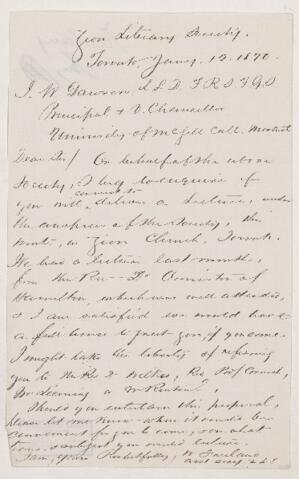 Zion Literary Society.
Toronto Jany. 12. 1870.
J. W. Dawson L.L.D. F.R.S. F.G.S
Principal & V. Chancellor
University of McGill Coll. Montreal
Dear Sir/ On behalf of the above
Society, I beg to enquire if
you will consent to deliver a Lecture, under
the auspices of the Society, this
in Zion Church, Toronto.
We had a lecture last month,
from the Rev. Dr Ormiston of
Hamilton, which was well attended,
& I am satisfied we would have
a full house to greet you, if you come.
I might take the liberty of referring
you to the Rev Dr Wilkes, Rev Prof Cornish,
or
Should you entertain this proposal,
please let me know when it would be
convenient for you to come, & on what
subject you would lecture.
I am, Yours Respectfully,